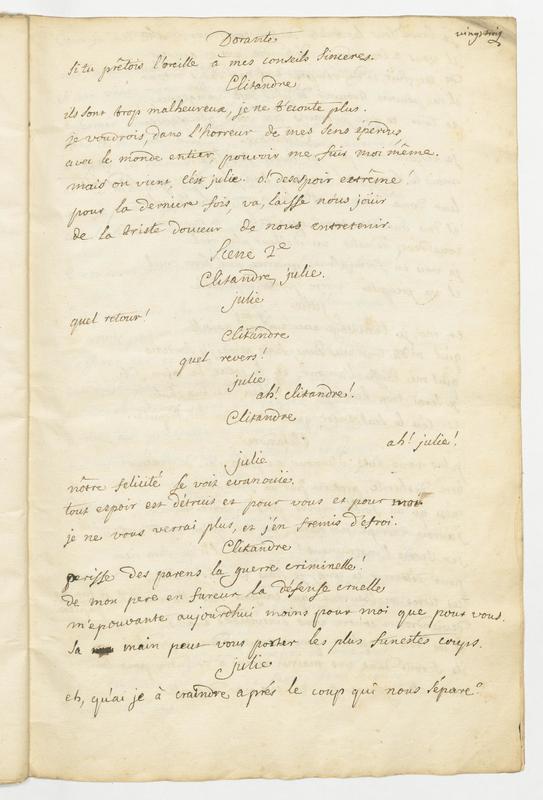 vingtcinq
Dorante
si tu prêtois l'oreille à mes conseils sinceres.
Clitandre
ils sont trop malheureux, je ne t'ecoute plus.
je voudrois, dans l'horreur de mes sens éperdus
avec le monde entier, pouvoir me fuir moi même.
mais on vient, c'est julie. o! desespoir extrême!
pour la derniere fois, va, laisse nous joüir
de la triste douceur de nous entretenir
Scene 2e
Clitandre, julie.
julie
quel retour!
Clitandre
quel revers!
julie
ah! clitandre!
Clitandre
ah! julie!
julie
nôtre felicité se voit evanouie.
tout espoir est détruit et pour vous et pour moi
je ne vous verrai plus, et j'en fremis d'efroi.
Clitandre
perisse des parens la guerre criminelle!
de mon pere en fureur la défense cruelle
m'epouvante aujourdhui moins pour moi que pour vous.
sa main peut vous porter les plus funestes coups.
julie
eh, qu'ai je à craindre aprés le coup qui nous sépare?